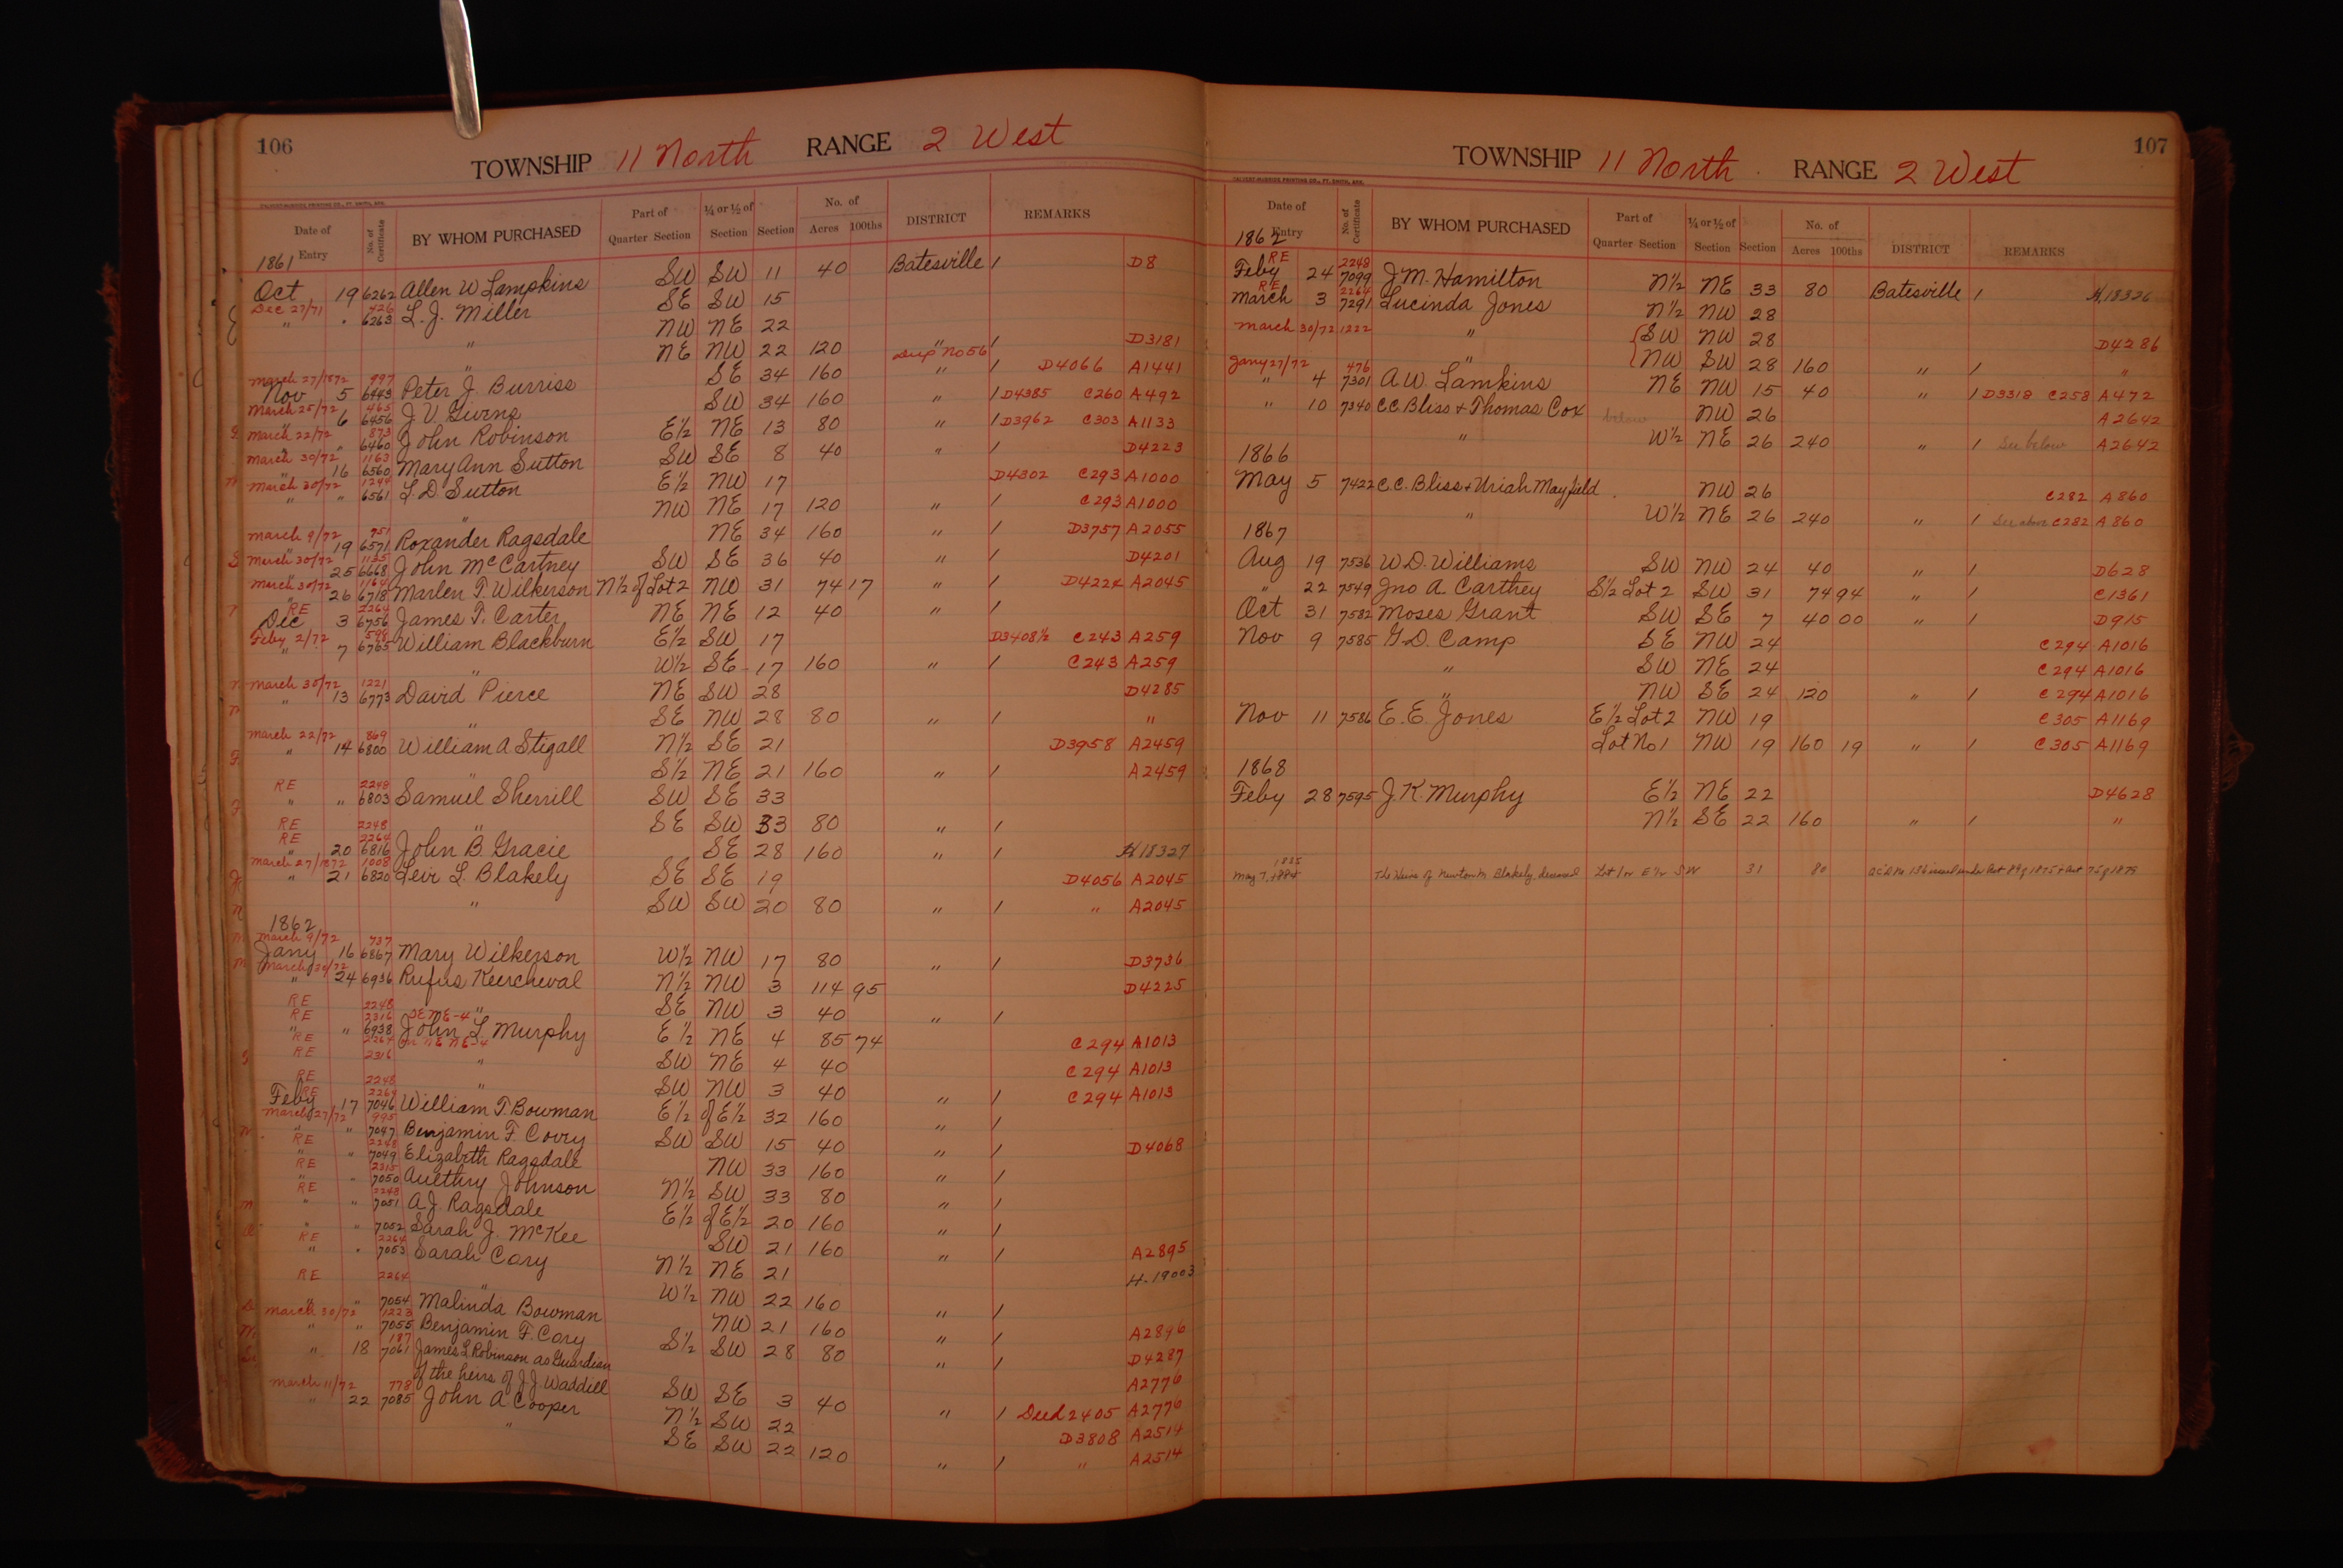 106
TOWNSHIP 11 North RANGE 2 West
CALVERT-McBRIDE PRINTING CO., FT. SMITH, ARK.
Date of Entry No. of Certificate BY WHOM PURCHASED Part of Quarter Section ¼ or ½ of Section Section No. of Acres 100ths DISTRICT REMARKS
1861
Oct 19 6262 Allen W Lampkins SW SW 11 40 Batesville / D8
Dec 27/71 426
" " 6263 L. J. Miller SE SW 15
" NW NE 22
" NE NW 22 120 " / D3181
Dup No 56
March 27/1872 997
Nov 5 6443 Peter J. Burriss SE 34 160 " / D4066 A1441
March 25/72 465
" 6 6456 J. V. Givens SW 34 160 " / D4385 C260 A492
G March 22/72 873
" " 6460 John Robinson E½ NE 13 80 " / D3962 C303 A1133
March 30/72 1163
" 16 6560 Mary Ann Sutton SW SE 8 40 " / D4223
March 30/72 1244
" " 6561 L. D. Sutton E½ NW 17 D4302 C293 A1000
" NW NE 17 120 " / C293 A1000
March 9/72 751
" 19 6571 Roxander Ragsdale NE 34 160 " / D3757 A2055
S March 30/72 1135
" 25 6668 John McCartney SW SE 36 40 " / D4201
March 30/72 1164
" 26 6718 Marlen T. Wilkerson N½ of Lot 2 NW 31 74 17 " / D4224 A2045
RE 2264
Dec 3 6756 James T. Carter NE NE 12 40 " /
Feby 2/72 598
" 7 6765 William Blackburn E½ SW 17 D3408½ C243 A259
" W½ SE 17 160 " / C243 A259
March 30/72 1221
" 13 6773 David Pierce NE SW 28 D4285
" SE NW 28 80 " / "
March 22/72 869
" 14 6800 William A Stigall N½ SE 21 D3958 A2459
" S½ NE 21 160 " / A2459
RE 2248
" " 6803 Samuel Sherrill SW SE 33
RE 2248
" SE SW 33 80 " /
RE 2264
" 20 6816 John B. Gracie SE 28 160 " / H18327
March 27/1872 1008
" 21 6820 Levi L. Blakely SE SE 19 D4056 A2045
" SW SW 20 80 " / " A2045
1862
March 9/72 737
Jany 16 6867 Mary Wilkerson W½ NW 17 80 " / D3736
March 30/72
" 24 6936 Rufus Keercheval N½ NW 3 114 95 D4225
RE 2248
" SE NW 3 40 " /
RE 2316 SE NE-4
" " 6938 John L Murphy E½ NE 4 85 74 C294 A1013
RE 2264 on NE NE-4
RE 2316
" SW NE 4 40 C294 A1013
RE 2248
" SW NW 3 40 " / C294 A1013
RE 2264
Feby 17 7046 William T. Bowman E½ of E½ 32 160 " /
March 27/72 995
" " 7047 Benjamin F. Covry SW SW 15 40 " / D4068
RE 2248
" " 7049 Elizabeth Ragsdale NW 33 160 " /
RE 2315
" " 7050 Aulthry Johnson N½ SW 33 80 " /
RE 2248
" " 7051 A. J. Ragsdale E½ of E½ 20 160 " /
" " 7052 Sarah J. McKee SW 21 160 " / A2895
RE 2264
" " 7053 Sarah Cory N½ NE 21 H-19003
RE 2264
" W½ NW 22 160 " /
" " 7054 Malinda Bowman NW 21 160 " / A2896
March 30/72 1223
" " 7055 Benjamin F. Cory S½ SW 28 80 " / D4287
187
" 18 7061 James L Robinson as Guardian A2776
of the heirs of J. J. Waddill SW SE 3 40 " / Deed 2405 A2776
March 11/72 778
" 22 7085 John A Cooper N½ SW 22 D3808 A2514
" SE SW 22 120 " / " A2514
107
TOWNSHIP 11 North RANGE 2 West
CALVERT-McBRIDE PRINTING CO., FT. SMITH, ARK.
Date of Entry No. of Certificate BY WHOM PURCHASED Part of Quarter Section ¼ or ½ of Section Section No. of Acres 100ths DISTRICT REMARKS
1862
RE 2248
Feby 24 7099 J. M. Hamilton N½ NE 33 80 Batesville / H18326
RE 2264
March 3 7291 Lucinda Jones N½ NW 28
March 30/72 1222 " SW NW 28 D4286
" NW SW 28 160 " / "
Jany 27/72 476
" 4 7301 A W. Lamkins NE NW 15 40 " / D3318 C258 A472
" 10 7340 C. C. Bliss & Thomas Cox below NW 26 A2642
" W½ NE 26 240 " / See below A2642
1866
May 5 7422 C. C. Bliss & Uriah Mayfield NW 26 C282 A860
" W½ NE 26 240 " / See above C282 A860
1867
Aug 19 7536 W. D. Williams SW NW 24 40 " / D628
" 22 7549 Jno A. Carthey S½ Lot 2 SW 31 74 94 " / C1361
Oct 31 7582 Moses Grant SW SE 7 40 00 " / D915
Nov 9 7585 G. D. Camp SE NW 24 C294 A1016
" SW NE 24 C294 A1016
" NW SE 24 120 " / C294 A1016
Nov 11 7586 E. E. Jones E½ Lot 2 NW 19 C305 A1169
Lot No 1 NW 19 160 19 " / C305 A1169
1868
Feby 28 7595 J. K. Murphy E½ NE 22 D4628
N½ SE 22 160 " / "
1885
May 7, 1884 The Heirs of Newton M Blakely, deceased Lot 1 or E½ SW 31 80 issued under Act 89 of 1875 & Act 75 of 1879